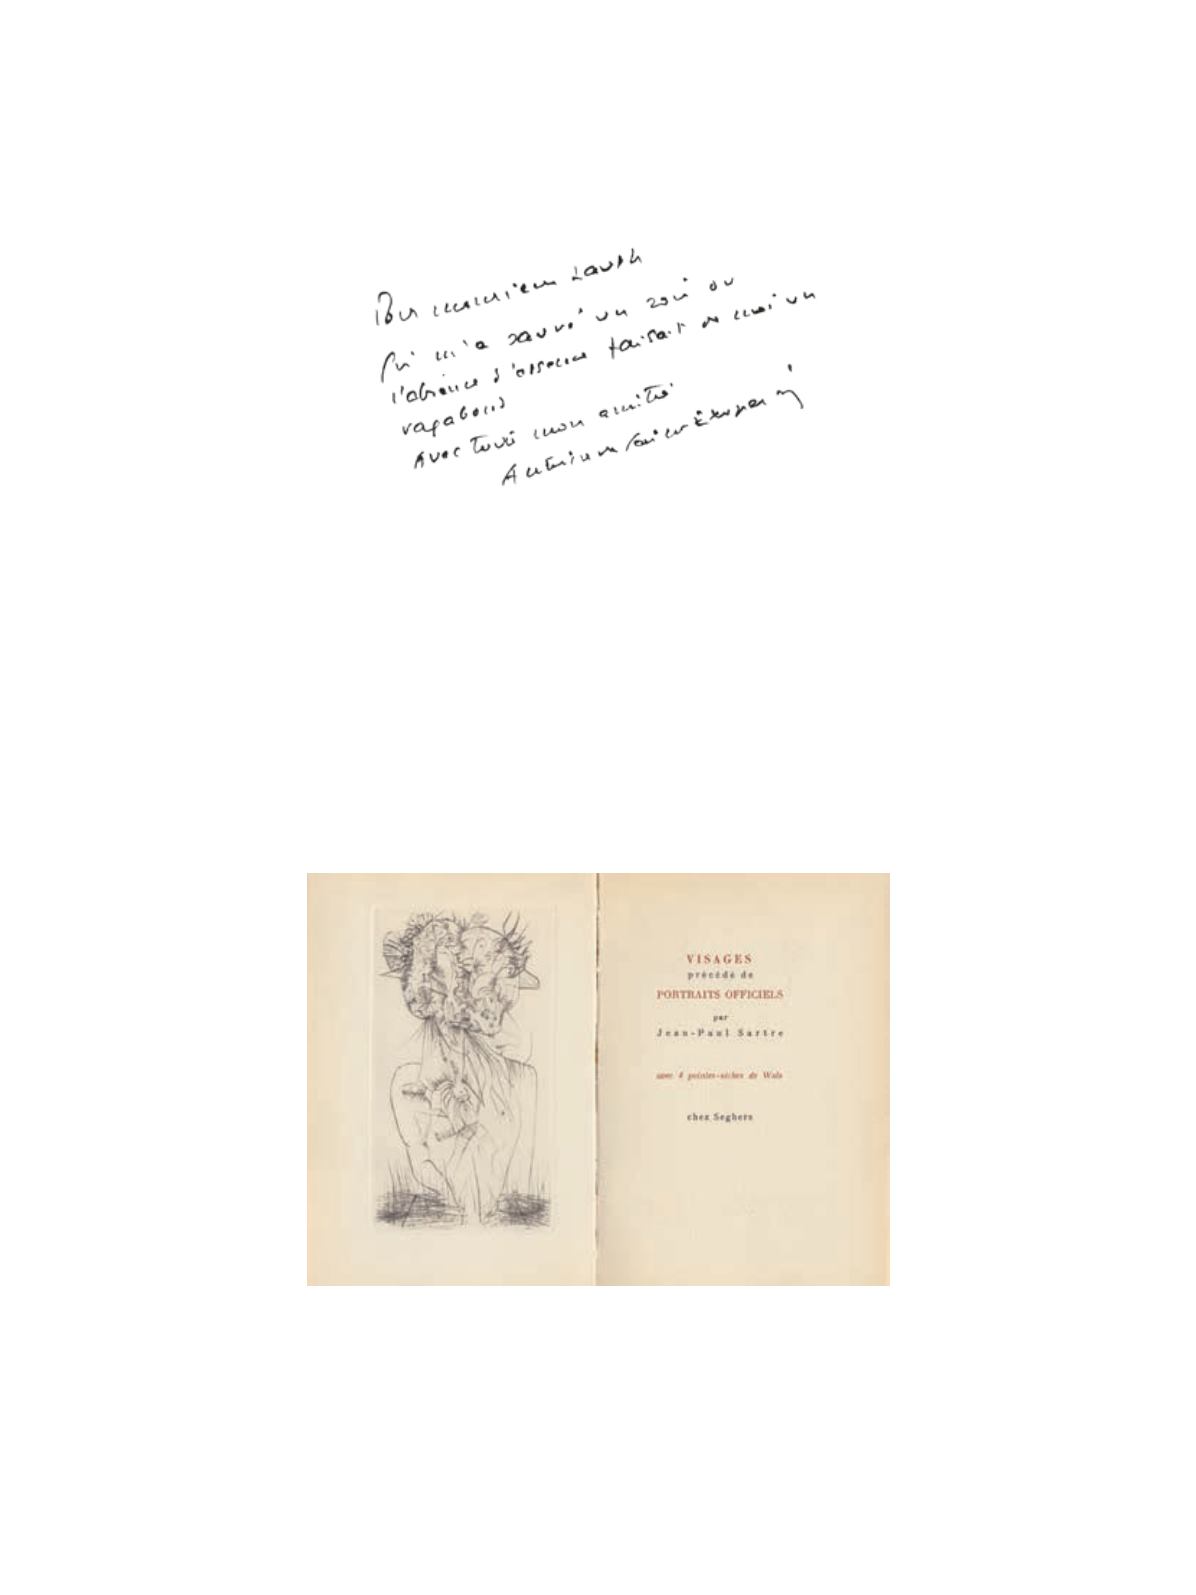 Pour monsieur Lauth
qui m'a sauvé un soir où
l'absence d'essence faisait de moi un
vagabond
Avec toute mon amitié
Antoine de Saint Exupéry
VISAGES
précédé de
PORTRAITS OFFICIELS
par
Jean-Paul Sartre
avec 4 pointes-sèches de Wols
chez Seghers